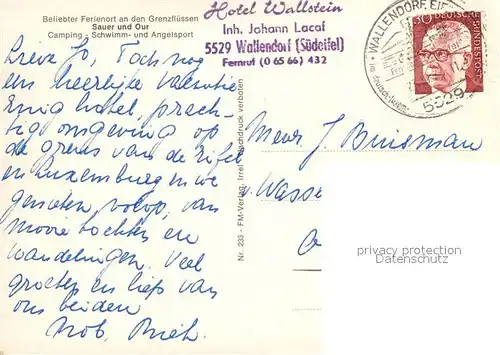 Beliebter Ferienort an den Grenzflüssen
Sauer und Our
Camping - Schwimm- und Angelsport
Hotel Wallstein
Inh. Johann Lacaf
5529 Wallendorf (Südeifel)
Fernruf (0 65 66) 432
WALLENDORF, EIFEL
5529
30 DEUTSCHE
BUNDESPOST
Lieve Jo, Toch nog
een heerlijke vacantie
Enig hotel, prach-
tig omgeving op
de grens van de Eifel
en Luxemburg en we
genieten volop, van
mooie tochten en
wandelingen. Veel
groeten en liefs van
ons beiden
Nr. 233 - FM-Verlag, Irrel Nachdruck verboten
Mevr. J. Buisman
v. Wasse
privacy protection